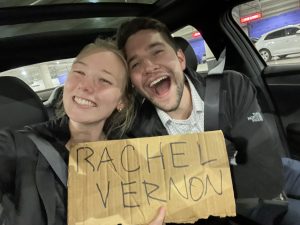 RACHEL
VERNON